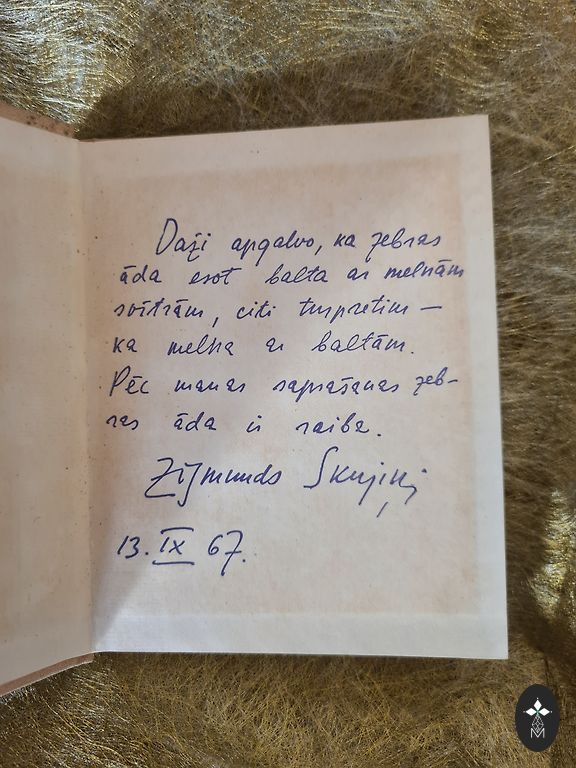 Daži apgalvo, ka zebras
āda esot balta ar melnām
svītrām, citi turpretim —
ka melna ar baltām.
Pēc manas saprašanas zeb-
ras āda ir raiba.
Zigmunds Skujiņš
13. IX 67.
M